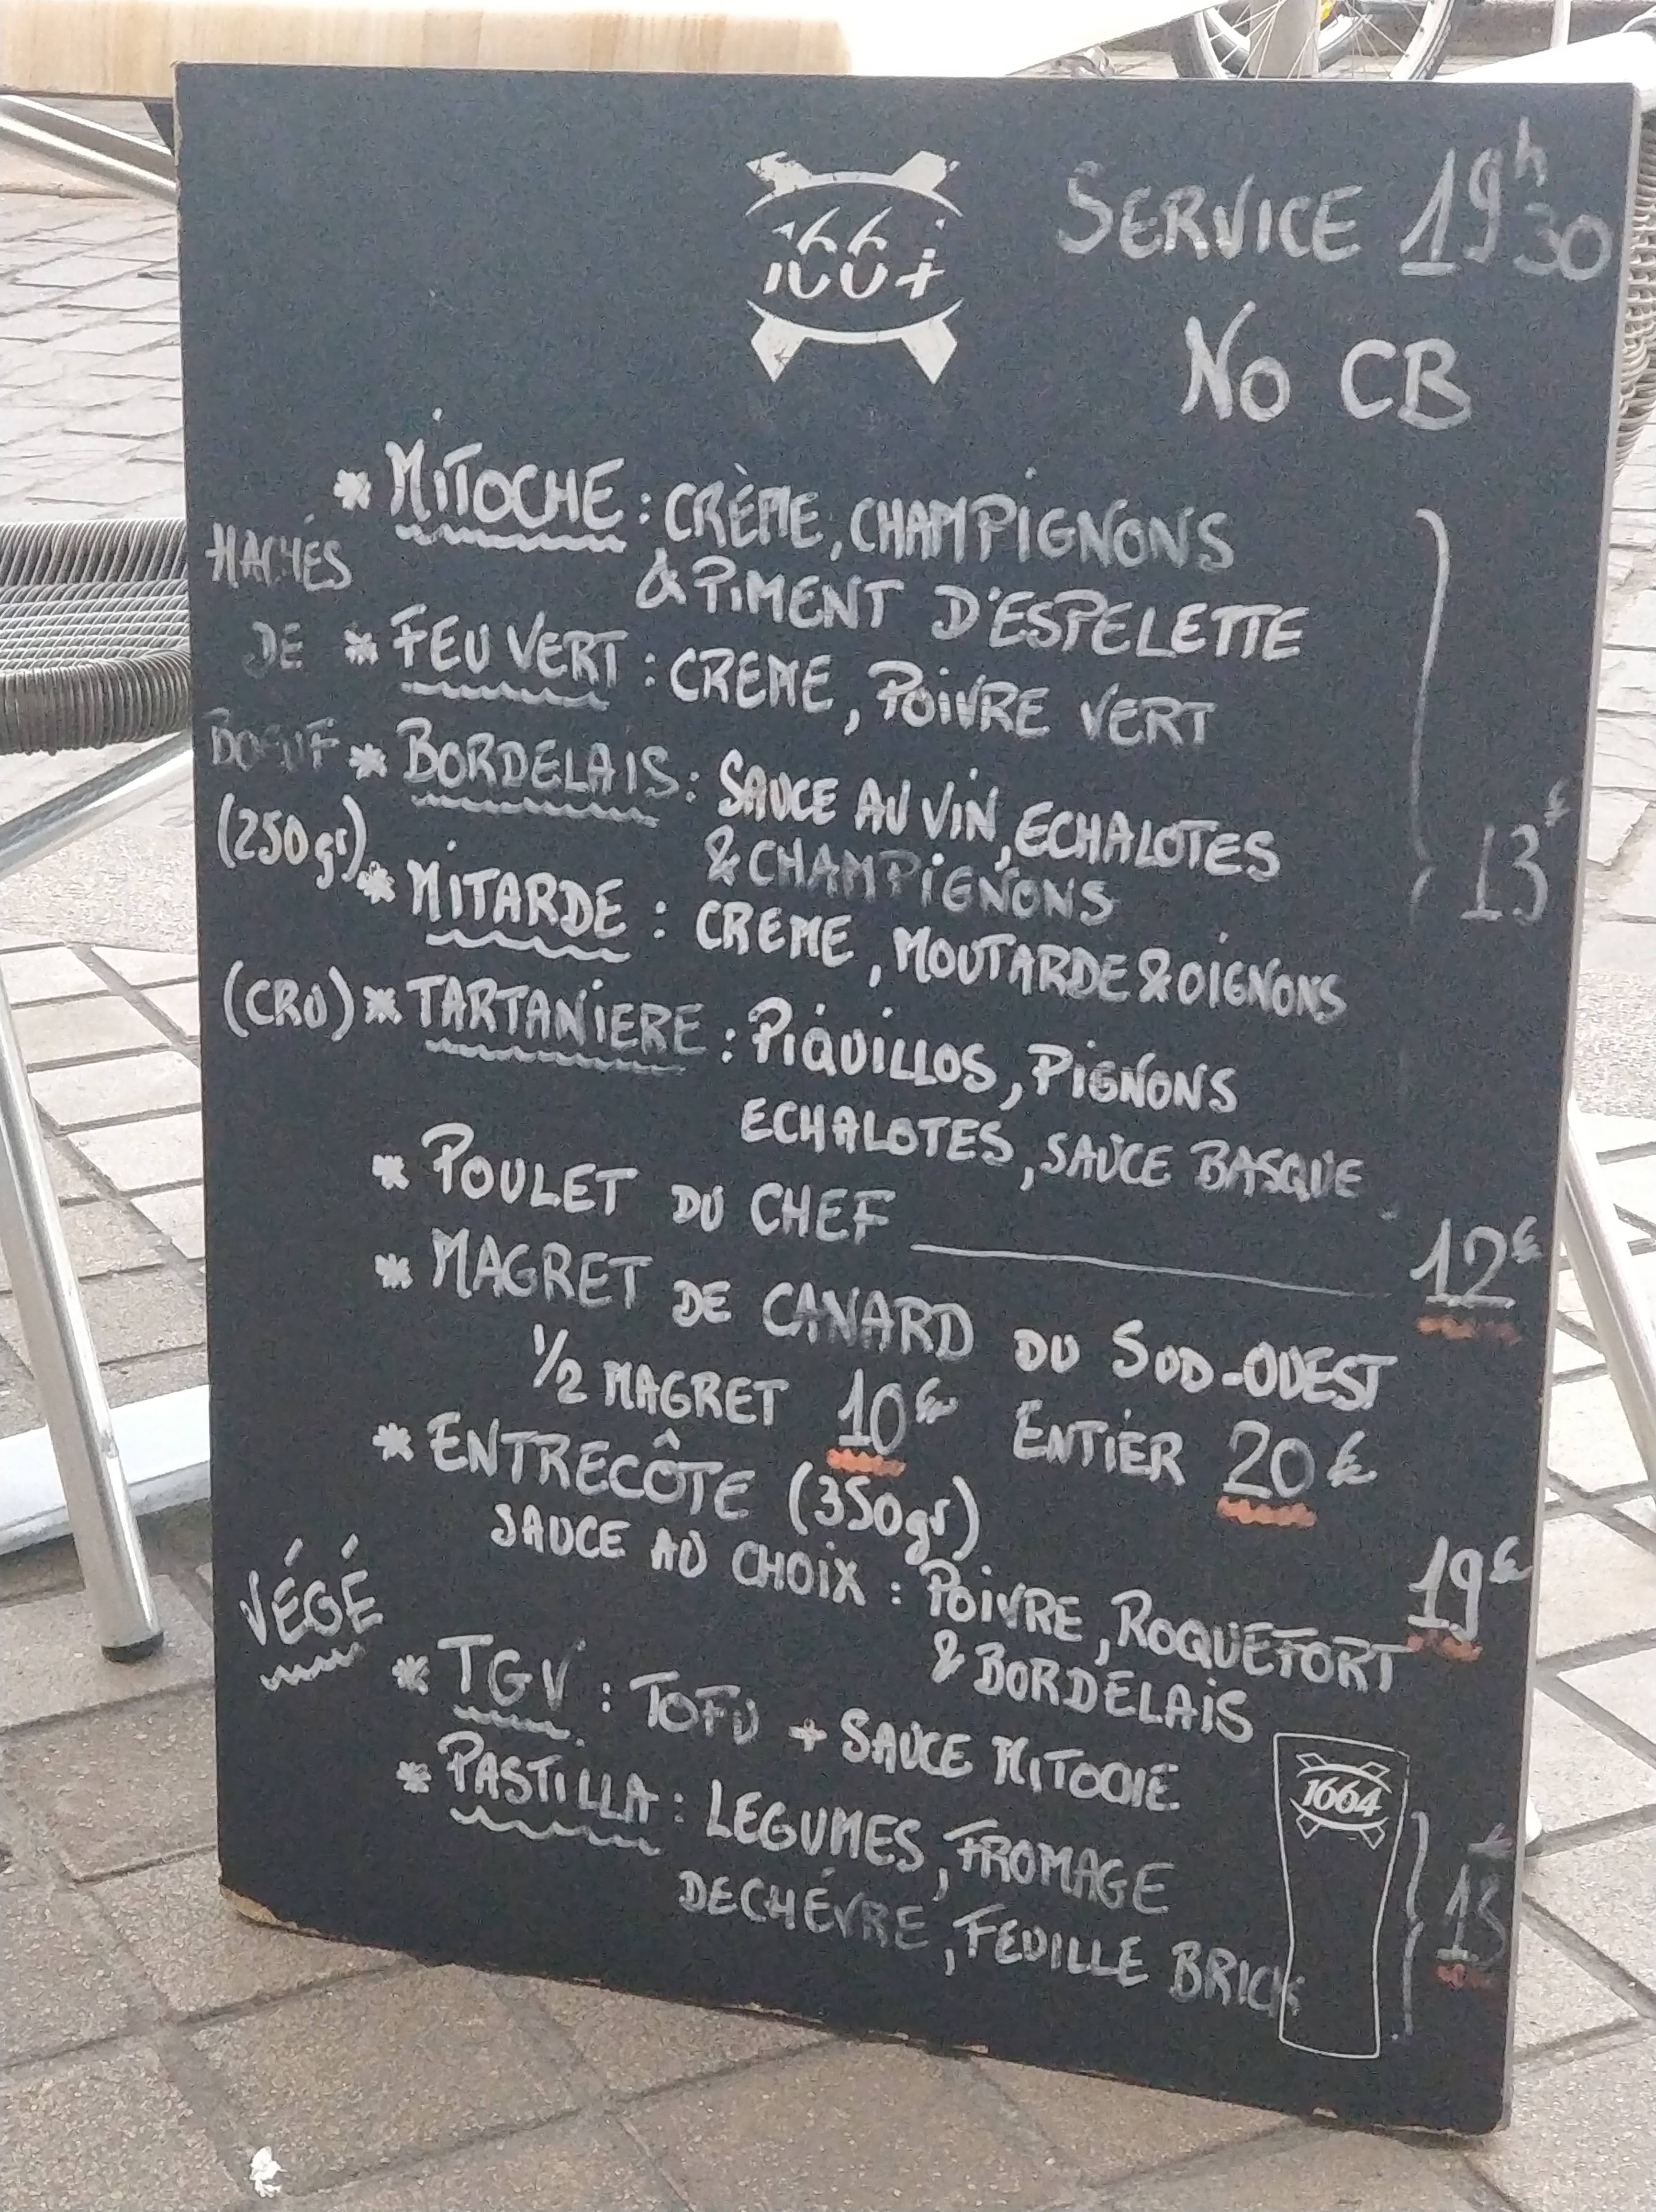 1664
SERVICE 19h30
NO CB
* MITOCHE : CRÈME, CHAMPIGNONS
& PIMENT D'ESPELETTE
HACHÉS
DE
BOEUF
(250gr)
* FEU VERT : CREME, POIVRE VERT
* BORDELAIS : SAUCE AU VIN, ECHALOTES
& CHAMPIGNONS
13€
* MITARDE : CREME, MOUTARDE & OIGNONS
(CRU) * TARTANIERE : PIQUILLOS, PIGNONS
ECHALOTES, SAUCE BASQUE
* POULET DU CHEF 12€
* MAGRET DE CANARD DU SUD-OUEST
1/2 MAGRET 10€ ENTIER 20€
* ENTRECÔTE (350gr) 19€
SAUCE AU CHOIX : POIVRE, ROQUEFORT
& BORDELAIS
VÉGÉ
* TGV : TOFU + SAUCE MITOCHE
* PASTILLA : LEGUMES, FROMAGE
DE CHÉVRE, FEUILLE BRICK
13
1664